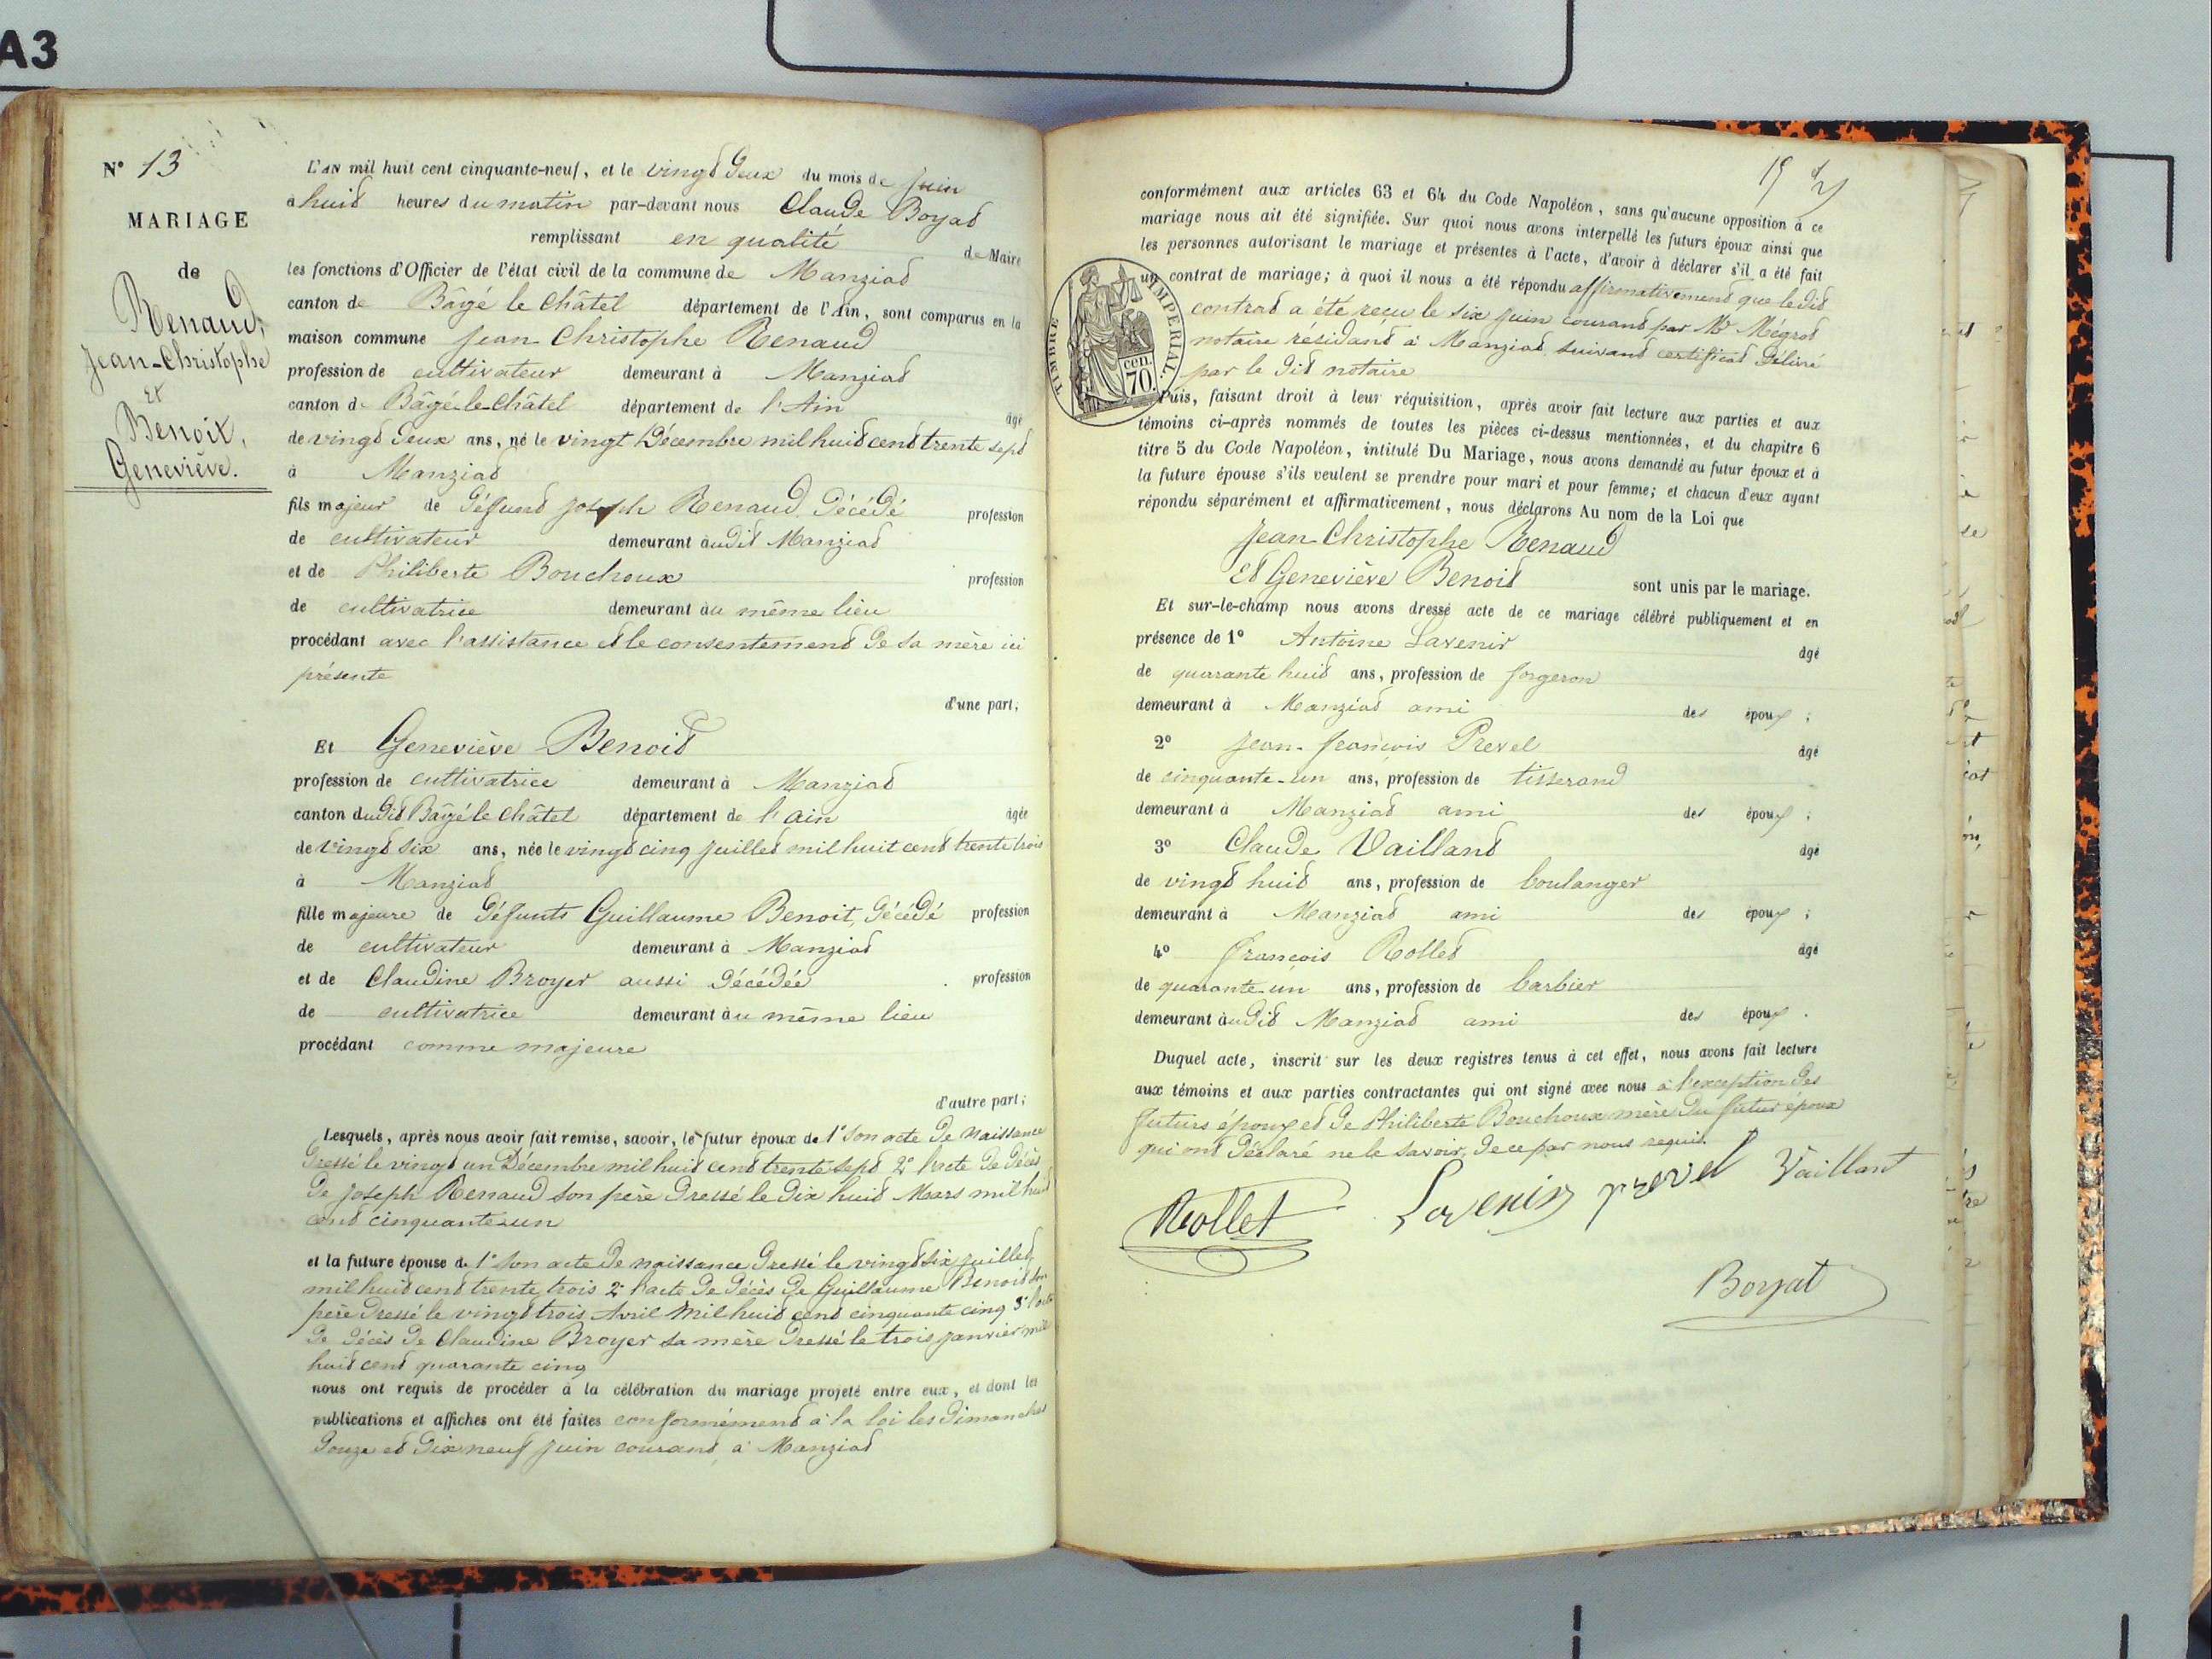 A3
N° 13
MARIAGE
de
Renaud,
Jean-Christophe
et
Benoit,
Geneviève.
L'AN mil huit cent cinquante-neuf, et le vingt deux du mois de juin
à huit heures du matin par-devant nous Claude Boyat
remplissant en qualité de Maire
les fonctions d'Officier de l'état civil de la commune de Manziat
canton de Bâgé le Châtel département de l'Ain, sont comparus en la
maison commune Jean Christophe Renaud
profession de cultivateur demeurant à Manziat
canton de Bâgé-le-Châtel département de l'Ain âgé
de vingt deux ans, né le vingt Décembre mil huit cent trente sept
à Manziat
fils majeur de défunt Joseph Renaud, décédé profession
de cultivateur demeurant audit Manziat
et de Philiberte Bouchoux profession
de cultivatrice demeurant au même lieu
procédant avec l'assistance et le consentement de sa mère ici
présente
d'une part;
Et Geneviève Benoit
profession de cultivatrice demeurant à Manziat
canton dudit Bâgé le Châtel département de l'ain âgée
de vingt six ans, née le vingt cinq juillet mil huit cent trente trois
à Manziat
fille majeure de défunts Guillaume Benoit, décédé profession
de cultivateur demeurant à Manziat
et de Claudine Broyer aussi décédée profession
de cultivatrice demeurant au même lieu
procédant comme majeure
d'autre part;
Lesquels, après nous avoir fait remise, savoir, le futur époux de 1° son acte de naissance
dressé le vingt un Décembre mil huit cent trente sept 2° l'acte de décès
de Joseph Renaud son père dressé le dix huit Mars mil huit
cent cinquante un
et la future épouse de 1° son acte de naissance dressé le vingt six juillet
mil huit cent trente trois 2° l'acte de décès de Guillaume Benoit son
père dressé le vingt trois Avril mil huit cent cinquante cinq 3° l'acte
de décès de Claudine Broyer sa mère dressé le trois janvier mil
huit cent quarante cinq
nous ont requis de procéder à la célébration du mariage projeté entre eux, et dont les
publications et affiches ont été faites conformément à la loi les dimanches
douze et dix neuf juin courant, à Manziat
conformément aux articles 63 et 64 du Code Napoléon, sans qu'aucune opposition à ce
mariage nous ait été signifiée. Sur quoi nous avons interpellé les futurs époux ainsi que
les personnes autorisant le mariage et présentes à l'acte, d'avoir à déclarer s'il a été fait
un contrat de mariage; à quoi il nous a été répondu affirmativement que le dit
contrat a été reçu le six juin courant par Mr Mégrot
notaire résidant à Manziat suivant certificat délivré
par le dit notaire
TIMBRE IMPERIAL.
cen.
70.
Puis, faisant droit à leur réquisition, après avoir fait lecture aux parties et aux
témoins ci-après nommés de toutes les pièces ci-dessus mentionnées, et du chapitre 6
titre 5 du Code Napoléon, intitulé Du Mariage, nous avons demandé au futur époux et à
la future épouse s'ils veulent se prendre pour mari et pour femme; et chacun d'eux ayant
répondu séparément et affirmativement, nous déclarons Au nom de la Loi que
Jean Christophe Renaud
Et Geneviève Benoit sont unis par le mariage.
Et sur-le-champ nous avons dressé acte de ce mariage célébré publiquement et en
présence de 1° Antoine Lavenir âgé
de quarante huit ans, profession de forgeron
demeurant à Manziat ami des époux;
2° Jean-françois Prevel âgé
de cinquante-un ans, profession de tisserand
demeurant à Manziat ami des époux;
3° Claude Vaillant âgé
de vingt huit ans, profession de boulanger
demeurant à Manziat ami des époux;
4° François Rollet âgé
de quarante-un ans, profession de barbier
demeurant audit Manziat ami des époux.
Duquel acte, inscrit sur les deux registres tenus à cet effet, nous avons fait lecture
aux témoins et aux parties contractantes qui ont signé avec nous à l'exception des
futurs époux et de Philiberte Bouchoux mère du futur époux
qui ont déclaré ne le savoir, de ce par nous requis.
Rollet Lavenir prevel Vaillant
Boyat